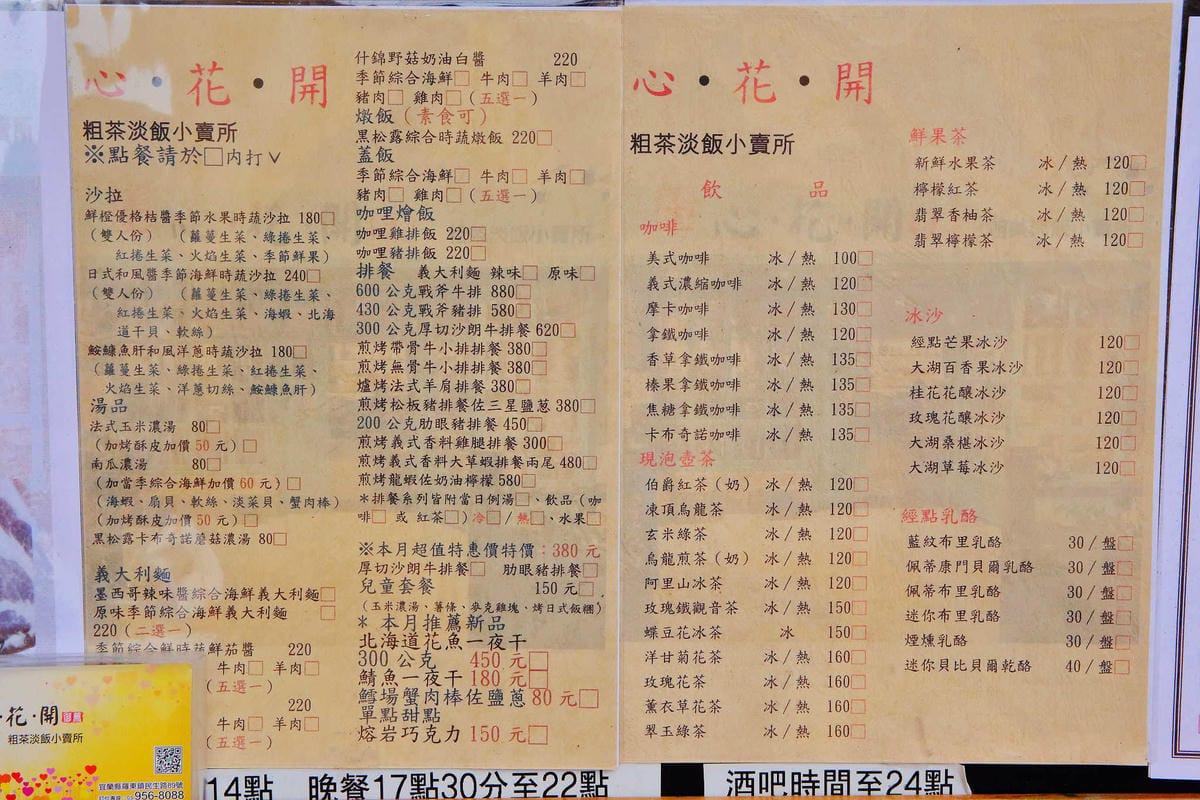 心・花・開
粗茶淡飯小賣所
※點餐請於□內打∨
沙拉
鮮橙優格桔醬季節水果時蔬沙拉 180□
(雙人份) (蘿蔓生菜、綠捲生菜、
紅捲生菜、火焰生菜、季節鮮果)
日式和風醬季節海鮮時蔬沙拉 240□
(雙人份) (蘿蔓生菜、綠捲生菜、
紅捲生菜、火焰生菜、海蝦、北海
道干貝、軟絲)
鮟鱇魚肝和風洋蔥時蔬沙拉 180□
(蘿蔓生菜、綠捲生菜、紅捲生菜、
火焰生菜、洋蔥切絲、鮟鱇魚肝)
湯品
法式玉米濃湯 80□
(加烤酥皮加價 50 元)□
南瓜濃湯 80□
(加當季綜合海鮮加價 60 元)□
(海蝦、扇貝、軟絲、淡菜貝、蟹肉棒)
(加烤酥皮加價 50 元)□
黑松露卡布奇諾蘑菇濃湯 80□
義大利麵
墨西哥辣味醬綜合海鮮義大利麵□
原味季節綜合海鮮義大利麵 □
220 (二選一)
季節綜合鮮時蔬鮮茄醬 220
牛肉□ 羊肉□
(五選一)
220
牛肉□ 羊肉□
(五選一)
什錦野菇奶油白醬 220
季節綜合海鮮□ 牛肉□ 羊肉□
豬肉□ 雞肉□ (五選一)
燉飯 (素食可)
黑松露綜合時蔬燉飯 220□
蓋飯
季節綜合海鮮□ 牛肉□ 羊肉□
豬肉□ 雞肉□ (五選一)
咖哩燴飯
咖哩雞排飯 220□
咖哩豬排飯 220□
排餐 義大利麵 辣味□ 原味□
600 公克戰斧牛排 880□
430 公克戰斧豬排 580□
300 公克厚切沙朗牛排餐 620□
煎烤帶骨牛小排排餐 380□
煎烤無骨牛小排排餐 380□
爐烤法式羊肩排餐 380□
煎烤松板豬排餐佐三星鹽蔥 380□
200 公克肋眼豬排餐 450□
煎烤義式香料雞腿排餐 300□
煎烤義式香料大草蝦排餐兩尾 480□
煎烤龍蝦佐奶油檸檬 580□
*排餐系列皆附當日例湯□、飲品(咖
啡□ 或 紅茶□)冷□/熱□、水果□
※本月超值特惠價特價:380 元
厚切沙朗牛排餐□ 肋眼豬排餐□
兒童套餐 150 元□
(玉米濃湯、薯條、麥克雞塊、烤日式飯糰)
* 本月推薦新品
北海道花魚一夜干
300 公克 450 元□
鯖魚一夜干 180 元□
鱈場蟹肉棒佐鹽蔥 80 元□
單點甜點
熔岩巧克力 150 元□
心・花・開
粗茶淡飯小賣所
飲 品
咖啡
美式咖啡 冰/熱 100□
義式濃縮咖啡 冰/熱 120□
摩卡咖啡 冰/熱 130□
拿鐵咖啡 冰/熱 120□
香草拿鐵咖啡 冰/熱 135□
榛果拿鐵咖啡 冰/熱 135□
焦糖拿鐵咖啡 冰/熱 135□
卡布奇諾咖啡 冰/熱 135□
現泡壺茶
伯爵紅茶(奶) 冰/熱 120□
凍頂烏龍茶 冰/熱 120□
玄米綠茶 冰/熱 120□
烏龍煎茶(奶) 冰/熱 120□
阿里山冰茶 冰/熱 120□
玫瑰鐵觀音茶 冰/熱 150□
蝶豆花冰茶 冰 150□
洋甘菊花茶 冰/熱 160□
玫瑰花茶 冰/熱 160□
薰衣草花茶 冰/熱 160□
翠玉綠茶 冰/熱 160□
鮮果茶
新鮮水果茶 冰/熱 120□
檸檬紅茶 冰/熱 120□
翡翠香柚茶 冰/熱 120□
翡翠檸檬茶 冰/熱 120□
冰沙
經點芒果冰沙 120□
大湖百香果冰沙 120□
桂花花釀冰沙 120□
玫瑰花釀冰沙 120□
大湖桑椹冰沙 120□
大湖草莓冰沙 120□
經點乳酪
藍紋布里乳酪 30/盤□
佩蒂康門貝爾乳酪 30/盤□
佩蒂布里乳酪 30/盤□
迷你布里乳酪 30/盤□
煙燻乳酪 30/盤□
迷你貝比貝爾乾酪 40/盤□
・花・開
粗茶淡飯小賣所
宜蘭縣羅東鎮民生路89號
956-8088
14點 晚餐17點30分至22點
酒吧時間至24點